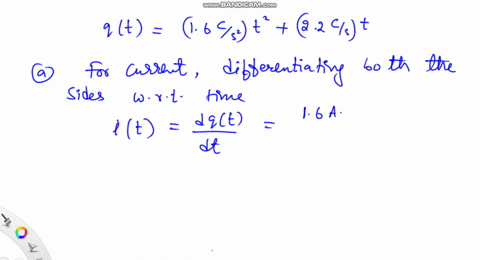 WWW.BANDICAM.COM
q(t) = (1.6 C/s²) t² + (2.2 C/s) t
(a) for current, differentiating both the
sides w.r.t. time
i(t) = dq(t)/dt = 1.6 A.